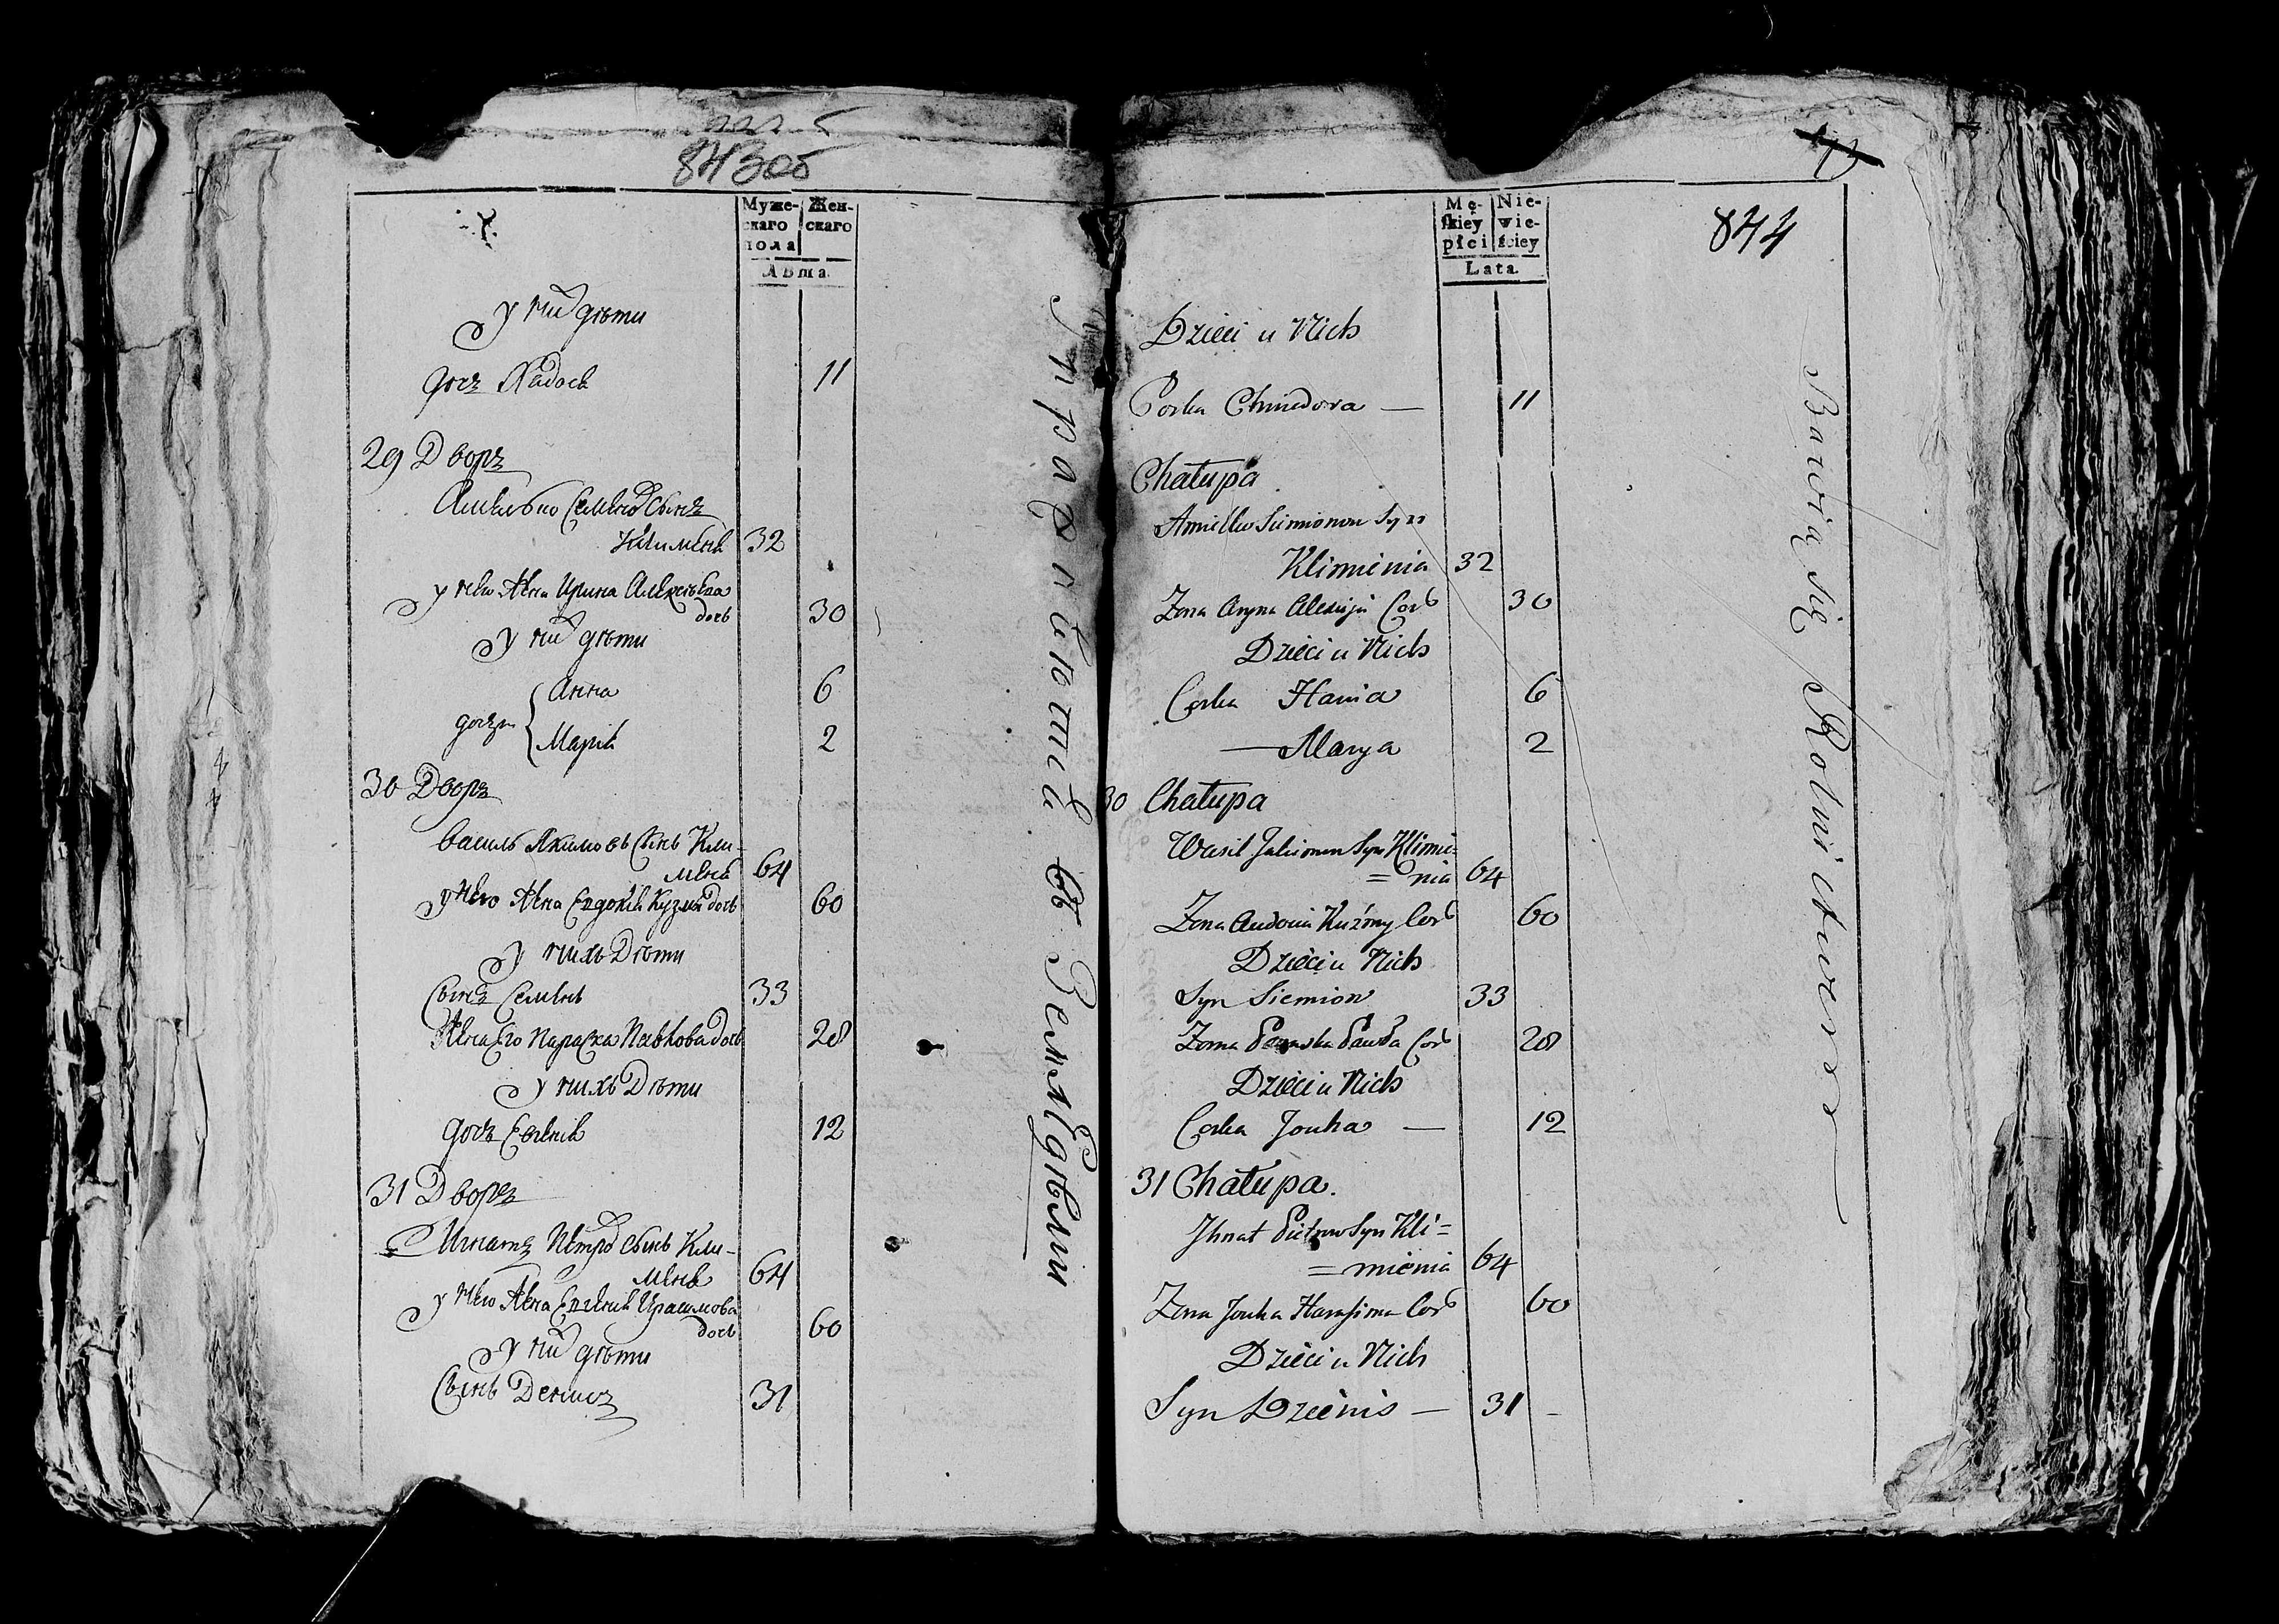 843об
Муже-
скаго
пола
Жен-
скаго
Лѣта
у них дѣти
дочъ Хадося 11
29 Дворъ
Амельяно Семенов Сынъ
Клименя 32
у нево жена Ирина Алексѣева
дочь 30
у них дѣти
дочъри { Анна 6
Марія 2
30 Дворъ
Василь Якимовъ Сынъ Кли-
меня 64
у Нево жена Евдокія Кузмы дочь 60
у нихъ Дѣти
Сынъ Семенъ 33
Жена Его Параска Павлова дочь 28
у нихъ Дѣти
дочъ Евгенія 12
31 Дворъ
Игнатъ Петров сынъ Кли-
меня 64
у Нево жена Евгенія Ирасимова
дочь 60
у них дѣти
Сынъ Денисъ 31
упражняются въ Земледѣлии
844
Mę-
skiey
płci
Nie-
wie-
ściey
Lata
Dzieci u Nich
Corka Chwiedora — 11
Chałupa
Amielko Siemionow Syn
Klimienia 32
Zona Aryna Alexieja Cor 30
Dzieci u Nich
Corka Hania 6
— Marya 2
30 Chałupa
Wasil Jakimow Syn Klimie=
=nia 64
Zona Audocia Kuźmy Cor 60
Dzieci u Nich
Syn Siemion 33
Zona Paraska Pawła Cor 28
Dzieci u Nich
Corka Jouha — 12
31 Chałupa.
Jhnat Pietrow Syn Kli=
=mienia 64
Zona Jouha Harasima Cor 60
Dzieci u Nich
Syn Dzienis — 31 -
Bawią się Rolnictwem